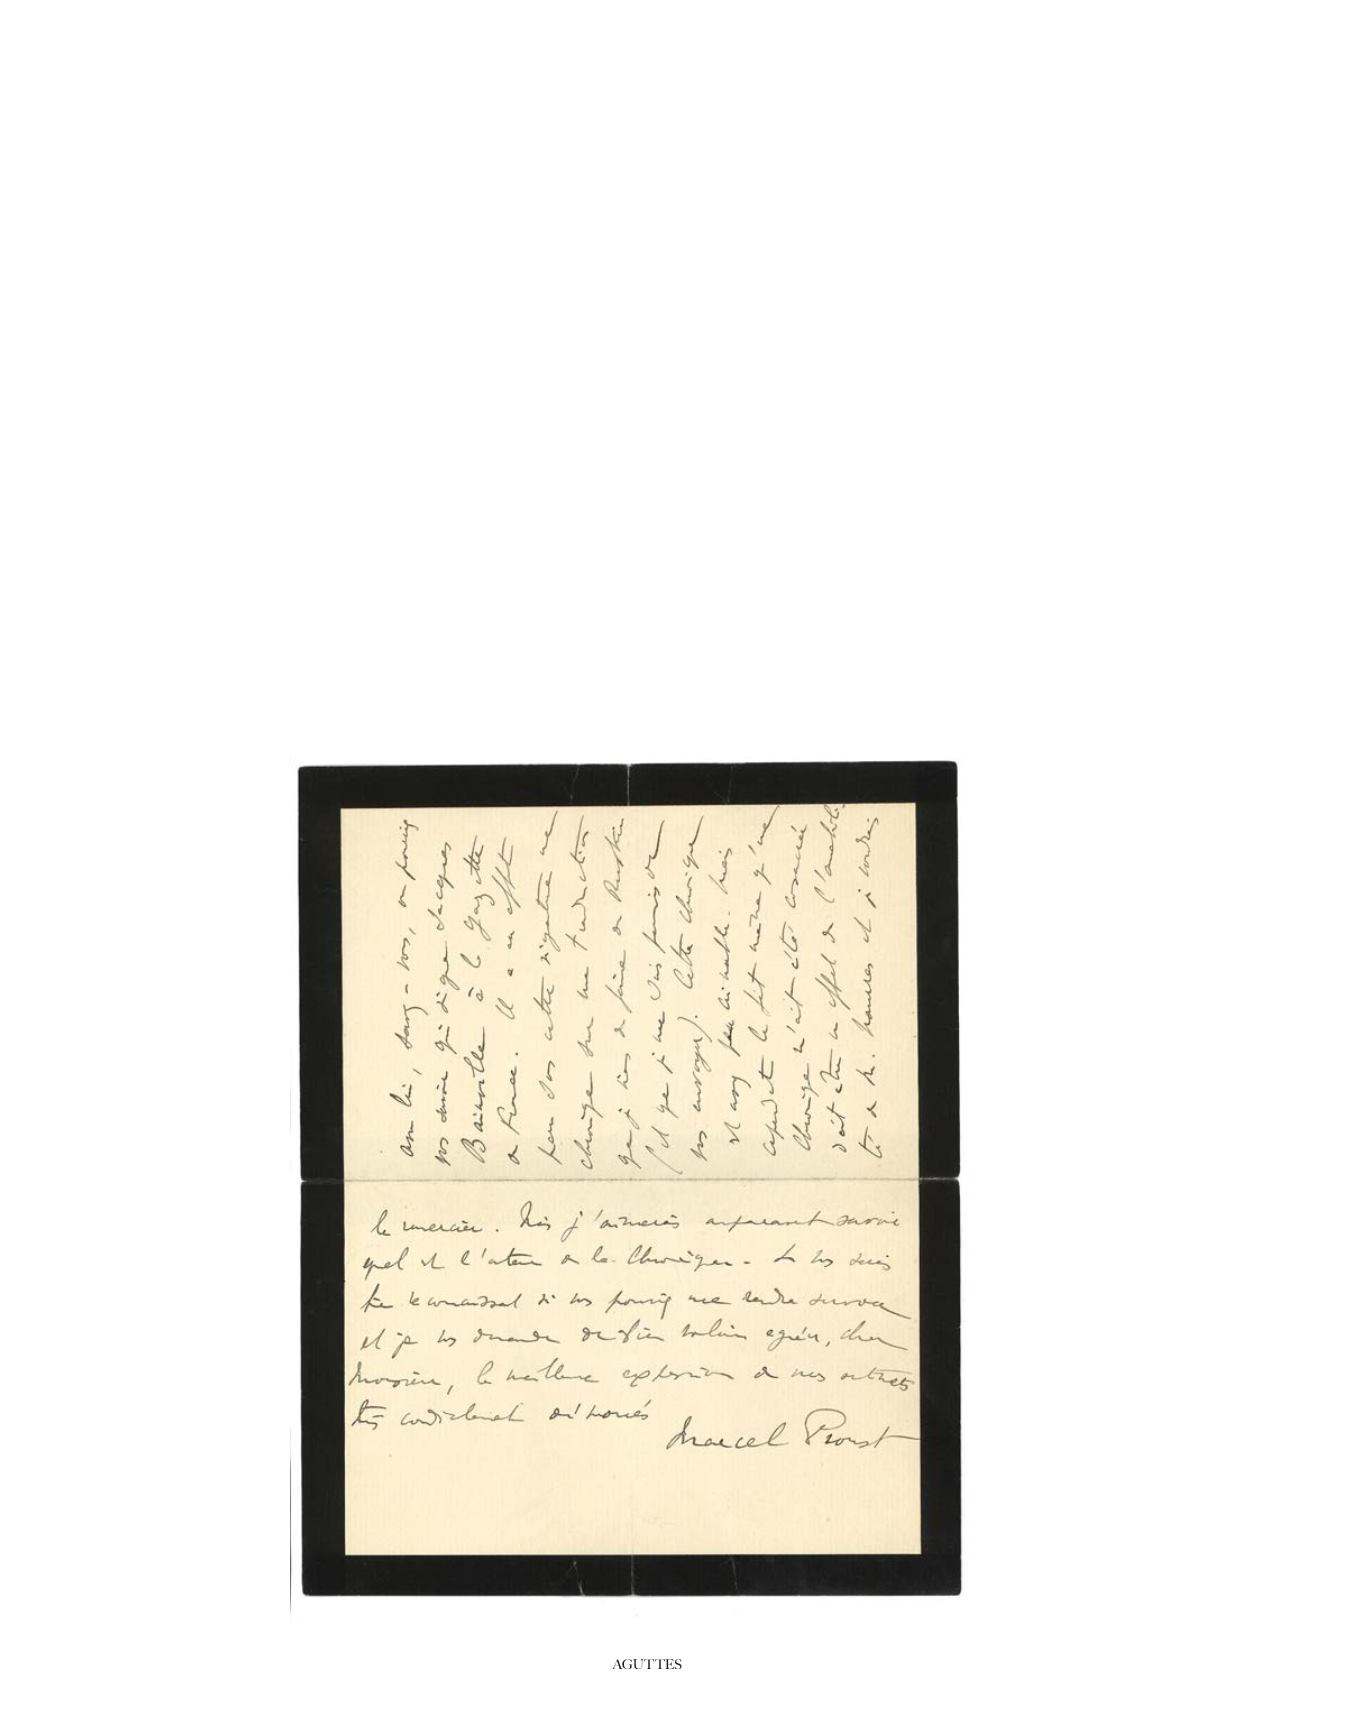 avec lui, savez-vous, ou pouvez
vous savoir qui signe Jacques
Bainville à la Gazette
de France. Il a en effet
paru sous cette signature une
chronique sur une traduction
que je viens de faire de Ruskin
(et que je me suis permis de
vous envoyer). Cette chronique
est assez peu aimable. Mais
cependant le fait même qu'une
chronique m'ait été consacrée
doit être un effet de l'amabili-
té de M. Maurras et je voudrais
le remercier. Mais j'aimerais auparavant savoir
quel est l'auteur de la Chronique. Je vous serais
très reconnaissant si vous pouviez me rendre service
et je vous demande de bien vouloir agréer, cher
Monsieur, la meilleure expression de mes sentiments
très cordialement dévoués
Marcel Proust
AGUTTES